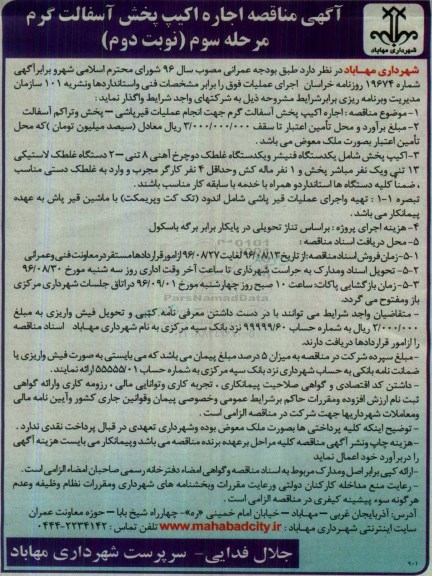 آگهی مناقصه اجاره اکیپ پخش آسفالت گرم
مرحله سوم (نوبت دوم)
شهرداری مهاباد
شهرداری مهـاباد در نظر دارد طبق بودجه عمرانی مصوب سال ۹۶ شورای محترم اسلامی شهرو برابرآگهی
شماره ۱۹۶۷۴ روزنامه خراسان اجرای عملیات فوق را برابر مشخصات فنی واستانداردها ونشریه ۱۰۱ سازمان
مدیریت وبرنامه ریزی برابرشرایط مشروحه ذیل به شرکتهای واجد شرایط واگذار نماید:
۱- موضوع مناقصه : اجاره اکیپ پخش آسفالت گرم جهت انجام عملیات قیرپاشی – پخش وتراکم آسفالت
۲- مبلغ برآورد و محل تأمین اعتبار تا سقف ۳/۰۰۰/۰۰۰/۰۰۰ ریال معادل (سیصد میلیون تومان )که محل
تأمین اعتبار بصورت ملک معوض می باشد .
۳- اکیپ پخش شامل یکدستگاه فنیشر ویکدستگاه غلطک دوچرخ آهنی ۸ تنی – ۲ دستگاه غلطک لاستیکی
۱۳ تنی ویک نفر مباشر پخش و ۱ نفر ماله کش وحداقل ۴ نفر کارگر مجرب و وارد به غلطک دستی مناسب
، ضمناً کلیه دستگاه ها استانداردو همراه با خدمه با سابقه کار مناسب باشند .
تبصره ۱-۱ : تهیه واجرای عملیات قیر پاشی شامل اندود (تک کت وپریمکت) با ماشین قیر پاش به عهده
پیمانکار می باشد.
۴- هزینه اجرای پروژه : براساس تناژ تحویلی در پایکار برابر برگه باسکول
۵- محل دریافت اسناد مناقصه :
۵-۱- زمان فروش اسناد مناقصه: از تاریخ ۹۶/۰۸/۱۳ لغایت ۹۶/۰۸/۲۷ از امور قراردادها مستقر در معاونت فنی وعمرانی
۵-۲- تحویل اسناد ومدارک به حراست شهرداری تا ساعت آخر وقت اداری روز سه شنبه مورخ ۹۶/۰۸/۳۰
۵-۳- زمان بازگشایی پاکات: ساعت ۱۰ صبح روز چهارشنبه مورخ ۹۶/۰۹/۰۱ دراتاق جلسات شهرداری مرکزی
باز ومفتوح می گردد.
– متقاضیان واجد شرایط می توانند با در دست داشتن معرفی نامه کتبی و تحویل فیش واریزی به مبلغ
۲/۰۰۰/۰۰۰ ریال به شماره حساب ۹۹۹۹۹/۶۰ نزد بانک سپه مرکزی به نام شهرداری مهاباد اسناد مناقصه
را ازامور قراردادها دریافت دارند.
– مبلغ سپرده شرکت در مناقصه به میزان ۵ درصد مبلغ پیمان می باشد که می بایستی به صورت فیش واریزی یا
ضمانت نامه بانکی به حساب شهرداری نزد بانک سپه مرکزی به شماره حساب ۵۵۵۵۵/۰۱ ارائه نمایند.
– داشتن کد اقتصادی و گواهی صلاحیت پیمانکاری ، تجربه کاری وتوانایی مالی ، رزومه کاری وارائه گواهی
ثبت نام ارزش افزوده ومقررات حاکم برشرایط عمومی وخصوصی پیمان وقوانین جاری کشور وآیین نامه مالی
ومعاملات شهرداریها جهت شرکت در مناقصه الزامی است .
– توضیح اینکه کلیه پرداختی ها بصورت ملک معوض بوده وشهرداری تعهدی در قبال پرداخت نقدی ندارد .
– هزینه چاپ ونشر آگهی مناقصه کلیه مراحل برعهده برنده مناقصه می باشد وپیمانکار می بایست هزینه آگهی
را دربرآورد خود اعمال نماید
– ارائه کپی برابر اصل ومدارک مربوط به اسناد مناقصه وگواهی امضاء دفترخانه رسمی صاحبان امضاء الزامی است .
– رعایت منع مداخله کارکنان دولتی ورعایت مقررات وبخشنامه های شهرداری ومقررات نظام وظیفه وعدم
هرگونه سوء پیشینه کیفری در مناقصه الزامی است .
آدرس: آذربایجان غربی – مهـابـاد – خیابان امام خمینی «ره»- چهارراه شیخ بابا – حوزه معاونت عمران
سایت اینترنتی شهرداری مهـابـاد : www.mahabadcity.ir تلفن تماس : ۲۲۳۴۱۴۲-۰۴۴۴
جلال فدایی - سرپرست شهرداری مهاباد
ParsNamadData